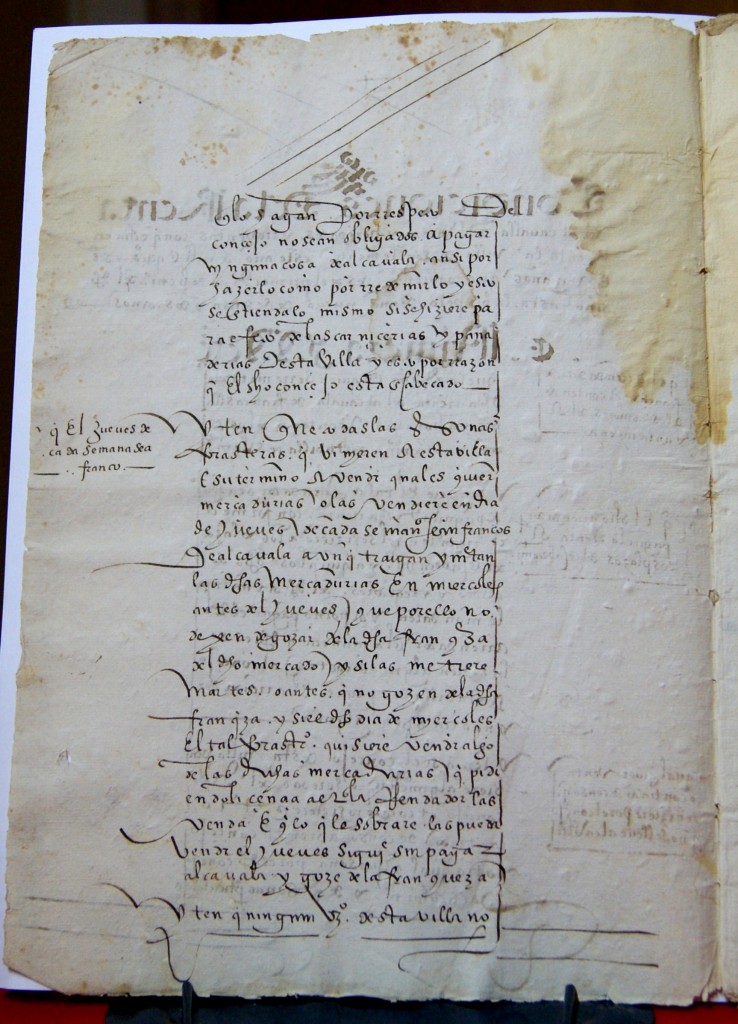 q lo hagan por rrespeto del
conçejo no sean obligados a pagar
ninguna cosa de alcavala ansi por
hazerlo como por rremirlo y esto
se entienda lo mismo si se hiziere pa
ra efeto de las carniçerias y pana
derias desta villa y esto por rrazon
q El dho conçejo esta encabeçado
q El Jueves de
cada semana sea
franco
Yten que todas las psonas
forasteras q vinieren A esta villa
E su termino A vendr quales quier
mercadurias o las vendieren En dia
de Jueves de cada semana sean francos
de alcavala aunq traigan y metan
las dhas mercadurias En miercoles
antes del Jueves y que por ello no
dexen de gozar de la dha franqza
del dho mercado y si las metiere
martes o antes q no gozen de la dha
franqza y si el dho dia de miercoles
El tal forastro quisiere vendr algo
de las dichas mercadurias q pida
liçençia al Arrendador las
venda E q lo q le sobrare las pueda
vendr el Jueves siguie sin pagar
alcavala y goze de la franqueza
Yten q ningun vzo desta villa no